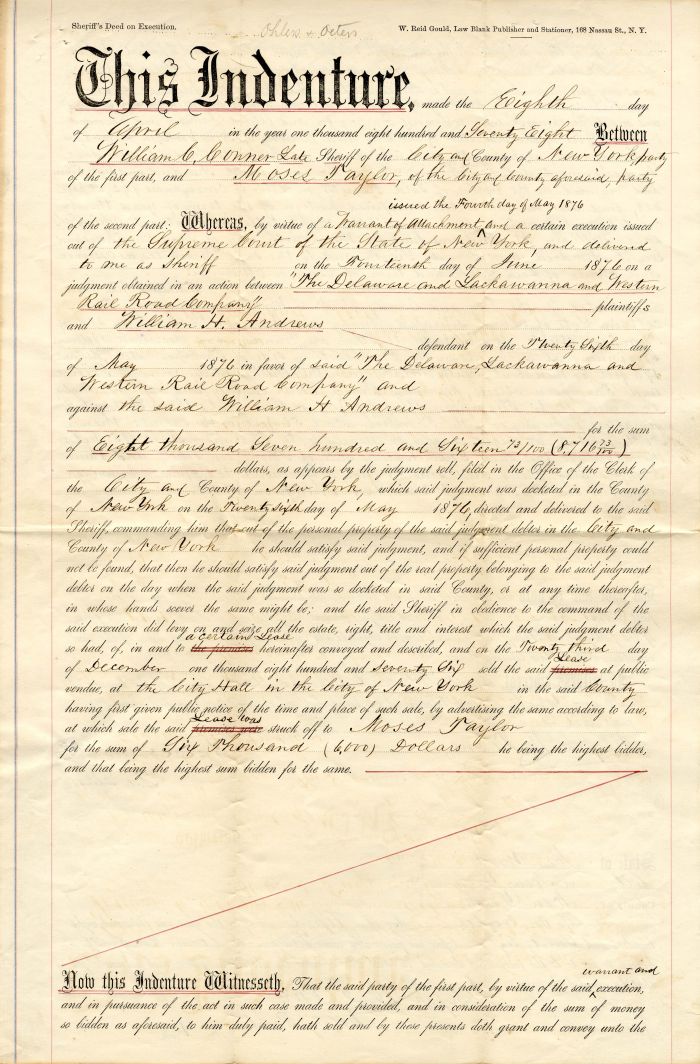 Sheriff's Deed on Execution.
Ohlen & Peters
W. Reid Gould, Law Blank Publisher and Stationer, 168 Nassau St., N. Y.
This Indenture, made the Eighth day
of April in the year one thousand eight hundred and Seventy Eight Between
William C. Conner Late Sheriff of the City and County of New York party
of the first part, and Moses Taylor, of the City and County aforesaid, party
issued the Fourth day of May 1876
of the second part: Whereas, by virtue of a Warrant of Attachment ^ and a certain execution issued
out of the Supreme Court of the State of New York, and delivered
to me as Sheriff on the Fourteenth day of June 1876 on a
judgment obtained in an action between "The Delaware and Lackawanna and Western
Rail Road Company" plaintiffs
and William H. Andrews
defendant on the Twenty Sixth day
of May 1876 in favor of said "The Delaware, Lackawanna and
Western Rail Road Company" and
against the said William H Andrews
for the sum
of Eight thousand Seven hundred and Sixteen 73/100 (8,716 73/100)
dollars, as appears by the judgment roll, filed in the Office of the Clerk of
the City and County of New York, which said judgment was docketed in the County
of New York on the Twenty Sixth day of May 1876, directed and delivered to the said
Sheriff, commanding him that out of the personal property of the said judgment debtor in the City and
County of New York he should satisfy said judgment, and if sufficient personal property could
not be found, that then he should satisfy said judgment out of the real property belonging to the said judgment
debtor on the day when the said judgment was so docketed in said County, or at any time thereafter,
in whose hands soever the same might be; and the said Sheriff in obedience to the command of the
said execution did levy on and seize all the estate, right, title and interest which the said judgment debtor
a certain Lease
so had, of, in and to the premises hereinafter conveyed and described, and on the Twenty third day
Lease
of December one thousand eight hundred and Seventy Six sold the said premises at public
vendue, at the City Hall in the City of New York in the said County
having first given public notice of the time and place of such sale, by advertising the same according to law,
Lease was
at which sale the said premises were struck off to Moses Taylor
for the sum of Six Thousand (6,000) Dollars he being the highest bidder,
and that being the highest sum bidden for the same.
warrant and
Now this Indenture Witnesseth, That the said party of the first part, by virtue of the said ^ execution,
and in pursuance of the act in such case made and provided, and in consideration of the sum of money
so bidden as aforesaid, to him duly paid, hath sold and by these presents doth grant and convey unto the